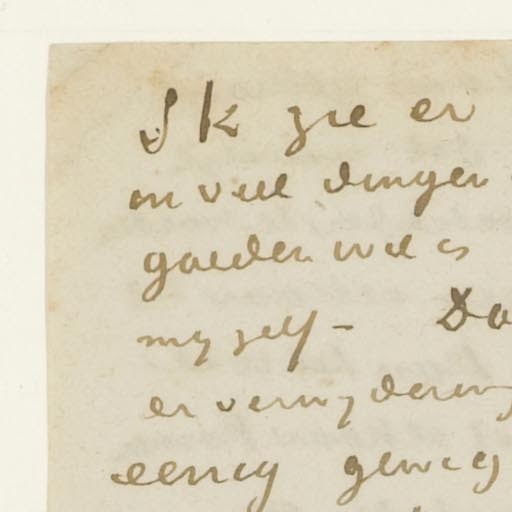 Ik zie er
in veel dingen
goeden wil is
myzelf – Do
er verwydering
eenig gewig